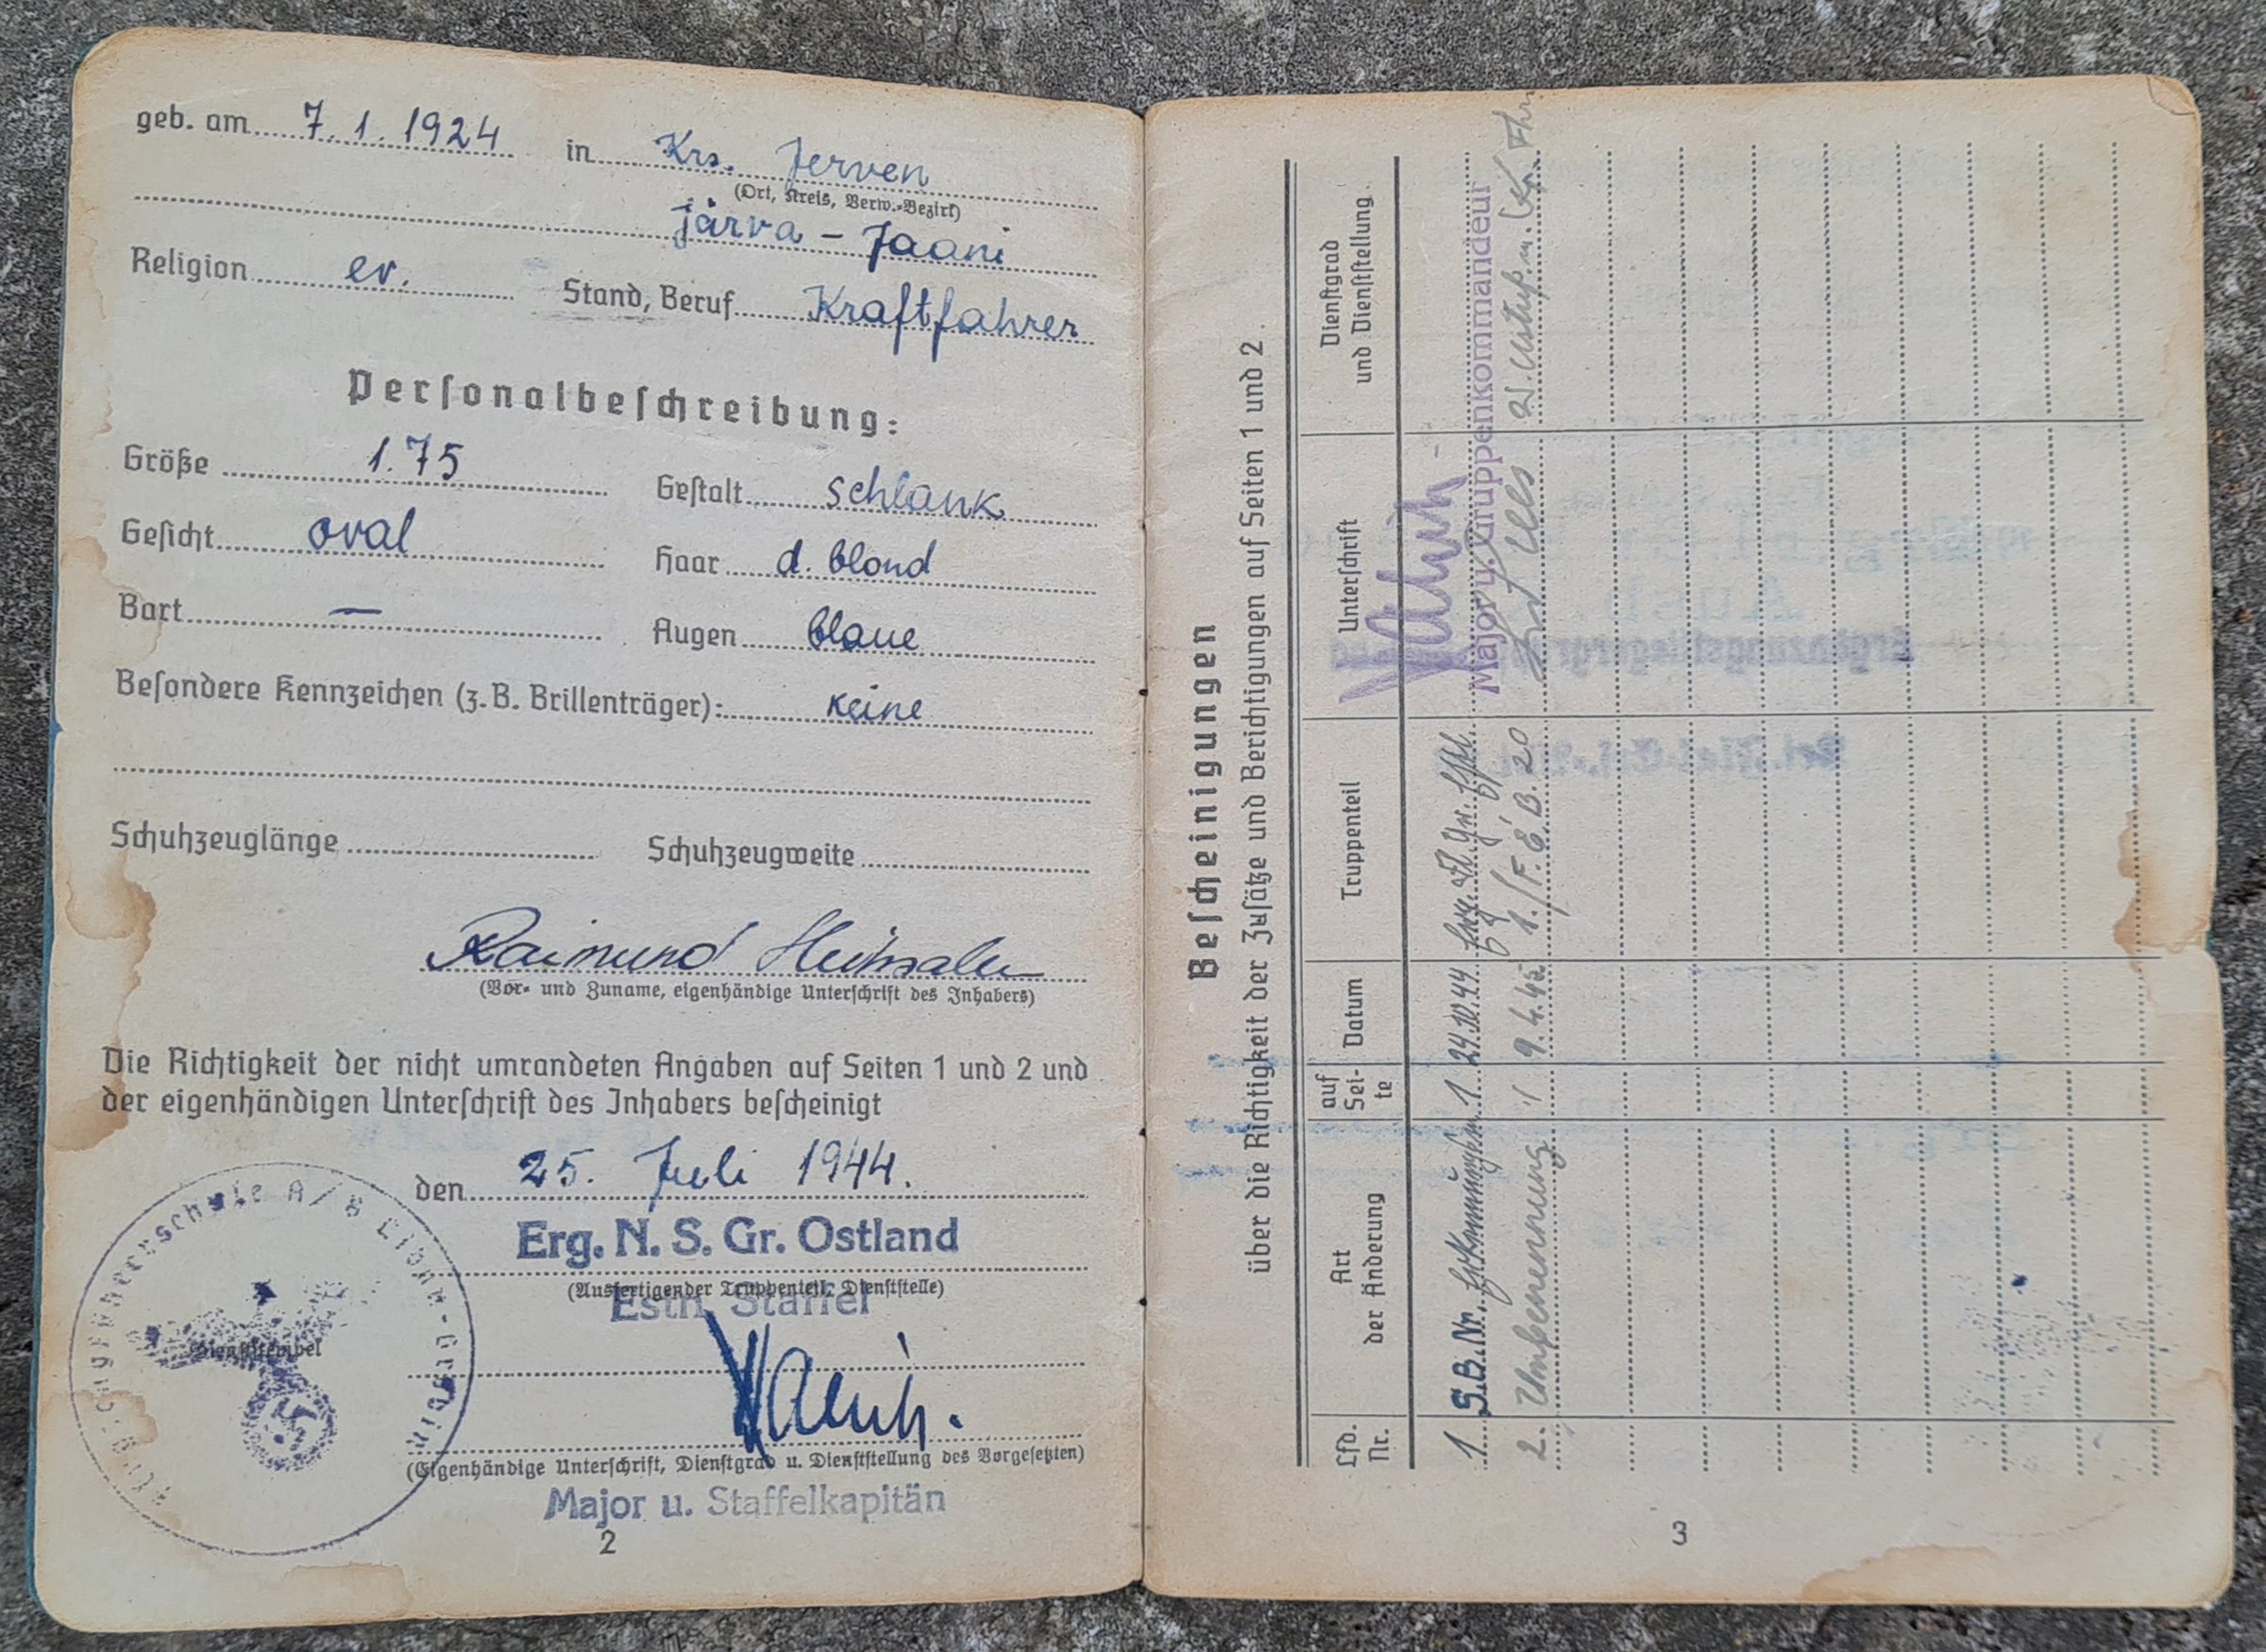 geb. am 7. 1. 1924 in Krs. Jerven
(Ort, Kreis, Verw.-Bezirk)
Järva - Jaani
Religion ev. Stand, Beruf Kraftfahrer
Personalbeschreibung:
Größe 1.75 Gestalt schlank
Gesicht oval Haar d. blond
Bart — Augen blaue
Besondere Kennzeichen (z. B. Brillenträger): keine
Schuhzeuglänge Schuhzeugweite
Raimund
(Vor- und Zuname, eigenhändige Unterschrift des Inhabers)
Die Richtigkeit der nicht umrandeten Angaben auf Seiten 1 und 2 und
der eigenhändigen Unterschrift des Inhabers bescheinigt
den 25. Juli 1944.
Erg. N. S. Gr. Ostland
(Ausfertigender Truppenteil, Dienststelle)
Estn. Staffel
Dienststempel
(Eigenhändige Unterschrift, Dienstgrad u. Dienststellung des Vorgesetzten)
Major u. Staffelkapitän
2
Bescheinigungen
über die Richtigkeit der Zusätze und Berichtigungen auf Seiten 1 und 2.
Lfd. Nr. Art der Änderung auf Sei-te Datum Truppenteil Unterschrift Dienstgrad und Dienststellung
1. S.B.Nr. 1 24.10.44
Major u. Gruppenkommandeur
2. Umbenennung 1 9.4.45 1./F.E.B. 20
3